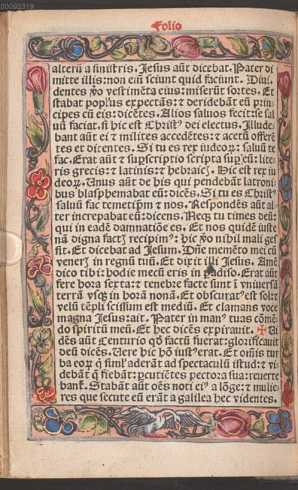 00093319
Folio
alterū a sinistris. Jesus aūt dicebat. Pater di
mitte illis: non eīm sciunt quid faciunt. Diui
dentes ꝟo vestimēta eius: miserūt sortes. Et
stabat popl̓us expectans: ⁊ deridebāt eū prin
cipes cū eis: dicētes. Alios saluos fecit: se sal
uū faciat. si hic est Christ⁹ dei electus. Illude
bant aūt ei ⁊ milites accedētes: ⁊ acetū offerē
tes et dicentes. Si tu es rex iudeoꝝ: saluū te
fac. Erat aūt ⁊ supscriptio scripta suꝑ eū: lite
ris grecis: ⁊ latinis: ⁊ hebraic̓. Hic est rex iu
deoꝝ. Unus aūt de his qui pendebāt latroni
bus blasphemabat eū: dicēs. Si tu es Christ⁹
saluū fac temetip̄m ⁊ nos. Respondēs aūt al
ter increpabat eū: dicens. Necꝫ tu times deū:
qui in eadē damnatiōe es. Et nos quidē iuste
nā digna fact̓ recipim⁹: hic ꝟo nihil mali ges
sit. Et dicebat ad Jesum. Dn̄e memēto mei cū
vener̓ in regnū tuū. Et dixit illi Jesus. Amē
dico tibi: hodie mecū eris in padiso. Erat aūt
fere hora sexta: ⁊ tenebre facte sunt ī vniuersā
terrā vsqꝫ in horā nonā. Et obscurat⁹ est sol: ⁊
velū tēpli scissum est mediū. Et clamans voce
magna Jesus: ait. Pater in man⁹ tuas cōmē
do spiritū meū. Et hec dicēs expirauit. ✠ Ui
dēs aūt Centurio qd̓ factū fuerat: glorificauit
deū dicēs. Uere hic hō iust⁹ erat. Et om̄is tur
ba eoꝝ q̓ siml̓ aderāt ad spectaculū istud: ⁊ vi
debāt q̓ fiebāt: ꝑcutiētes pectora sua: reuerte
banť. Stabāt aūt oēs noti ei⁹ a lōge: ⁊ mulie
res que secute eū erāt a galilea hec videntes.